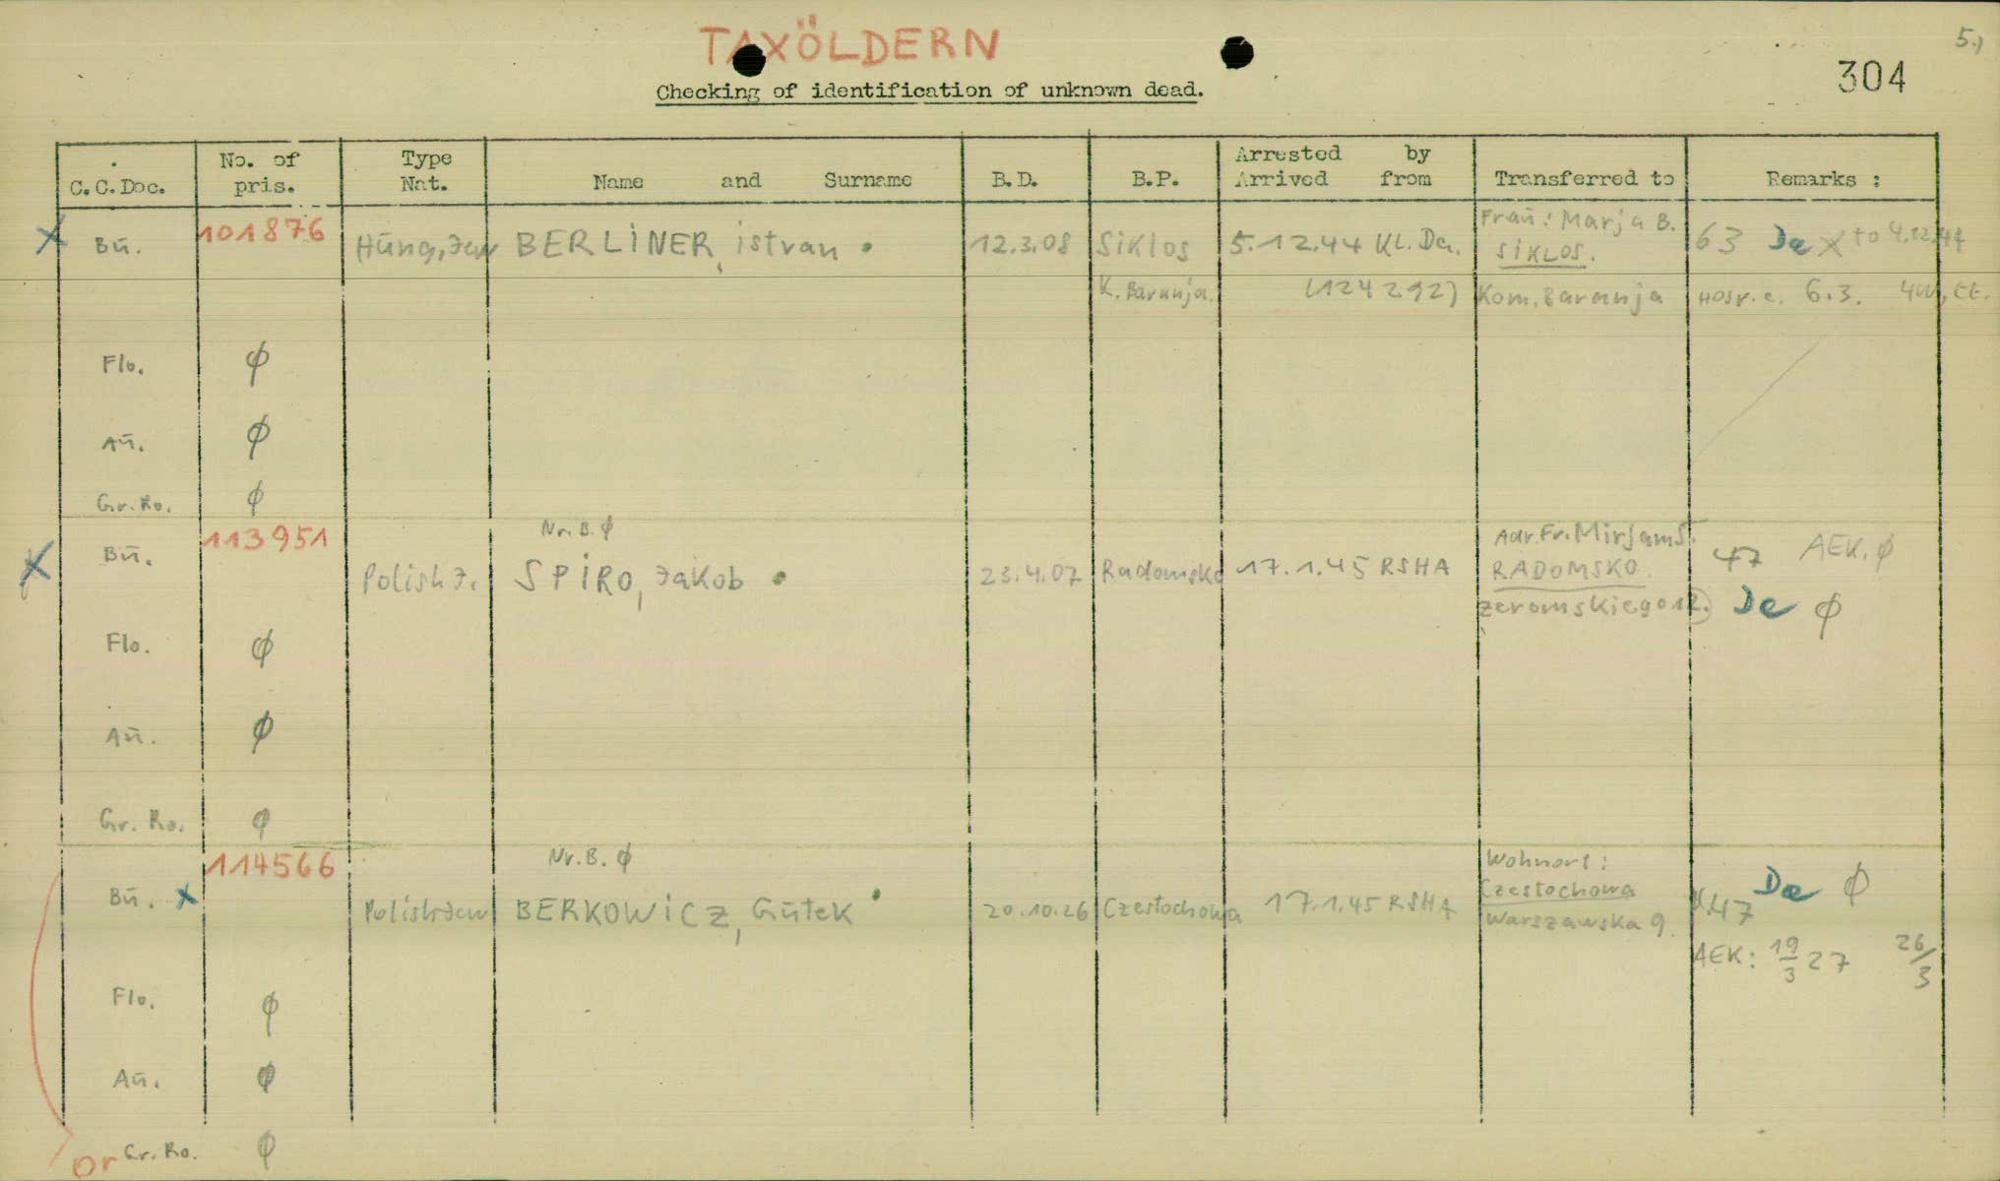 TAXÖLDERN
5.)
Checking of identification of unknown dead.
304
C.C.Doc. No. of pris. Type Nat. Name and Surname B.D. B.P. Arrested by Arrived from Transferred to Remarks :
x Bū. 101876 Hūng, Jew BERLINER, istvan 12.3.08 Siklos 5.12.44 KL. Da. Fraū: Marja B. SIKLOS. 63 Da x to 4.12.44
K. Baranja. (124292) Kom. Baranja 6.3.
Flo. ϕ
Aū. ϕ
Gr. Ro. ϕ
x Bū. 113951 Nr. B. ϕ
Polish J. SPIRO, Jakob 23.4.07 Radomsko 17.1.45 RSHA Adr. Fr. Mirjam S. RADOMSKO zeromskiego 12. 47 AEK. ϕ
De ϕ
Flo. ϕ
Aū. ϕ
Gr. Ro. ϕ
Bū. x 114566 Nr. B. ϕ
Polish Jew BERKOWICZ, Gūtek 20.10.26 Czestochowa 17.1.45 RSHA Wohnort: Czestochowa Warszawska 9. 47 Da ϕ
AEK: 19/3 27 26/3
Flo. ϕ
Aū. ϕ
or Gr. Ro. ϕ